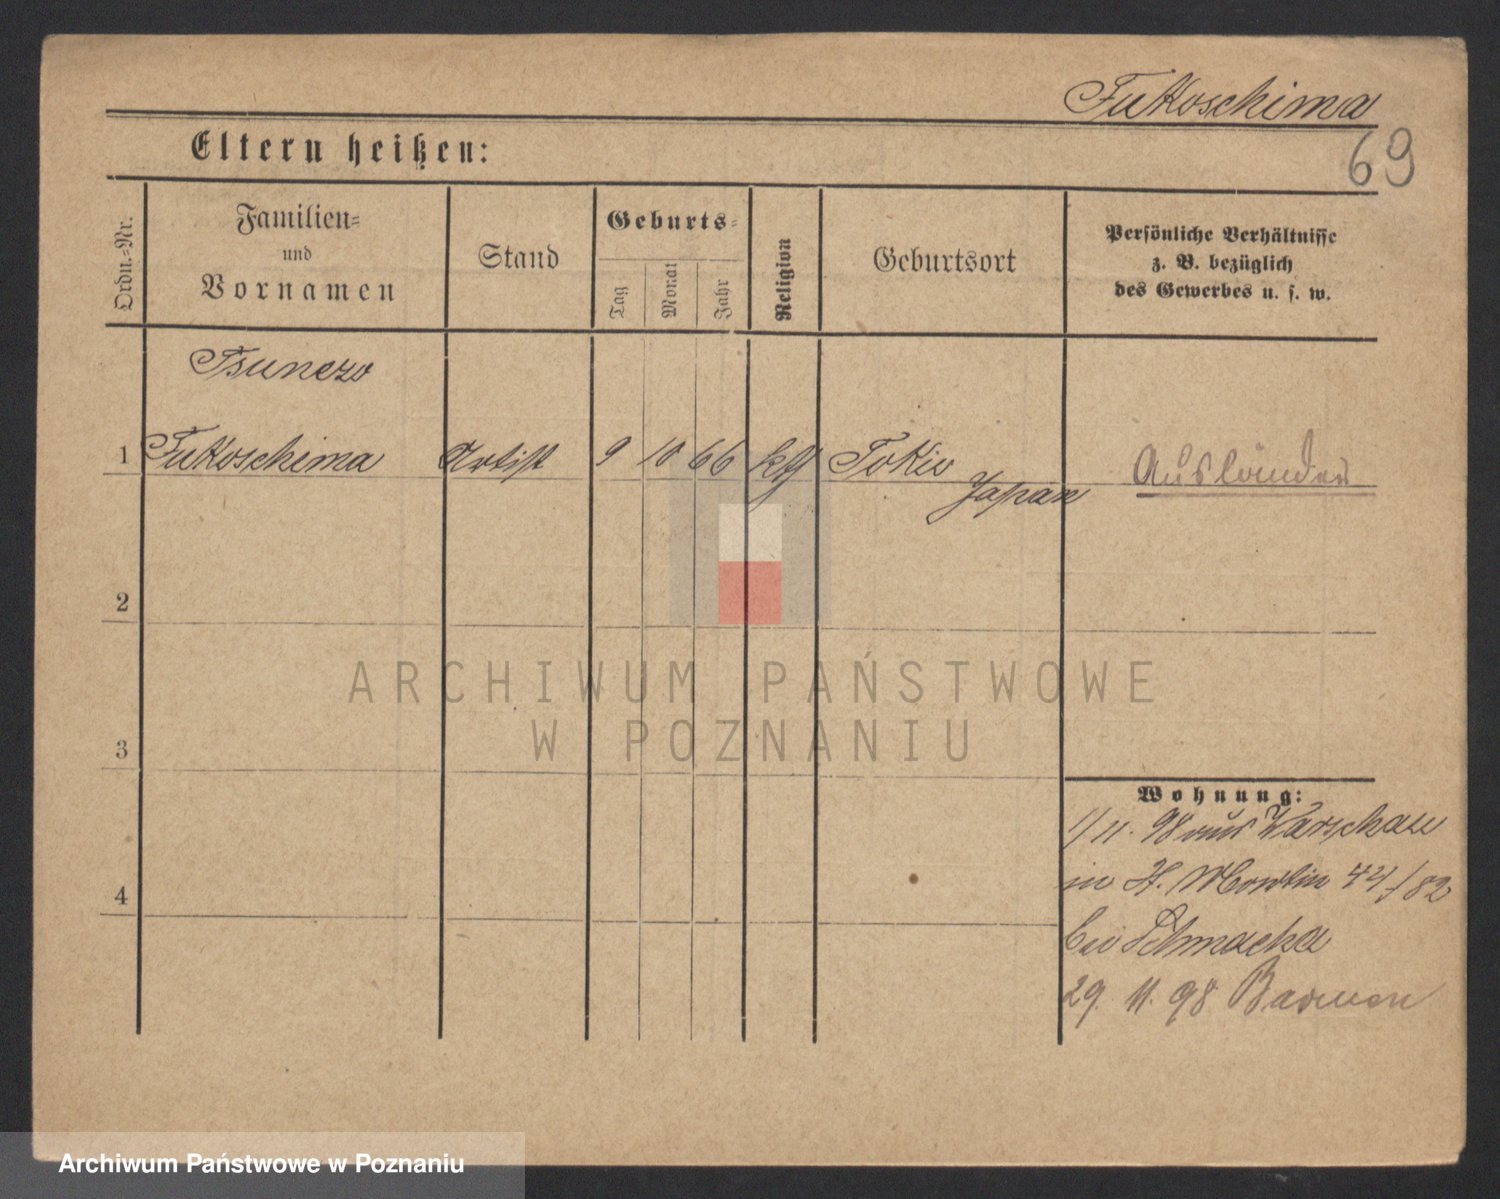 Fukoschima
69
Eltern heißen:
Ordn.-Nr.
Familien-
und
Vornamen
Stand
Geburts-
Tag
Monat
Jahr
Religion
Geburtsort
Persönliche Verhältnisse
z. B. bezüglich
des Gewerbes u. s. w.
Tsunezo
1 Fukoschima Artist 9 10 66 Tokio
Japan
Ausländer
2
3
4
Wohnung:
1/11. 98 aus Warschau
in St. Martin 44/82
bei
29. 11. 98 Barmen
ARCHIWUM PAŃSTWOWE
W POZNANIU
Archiwum Państwowe w Poznaniu